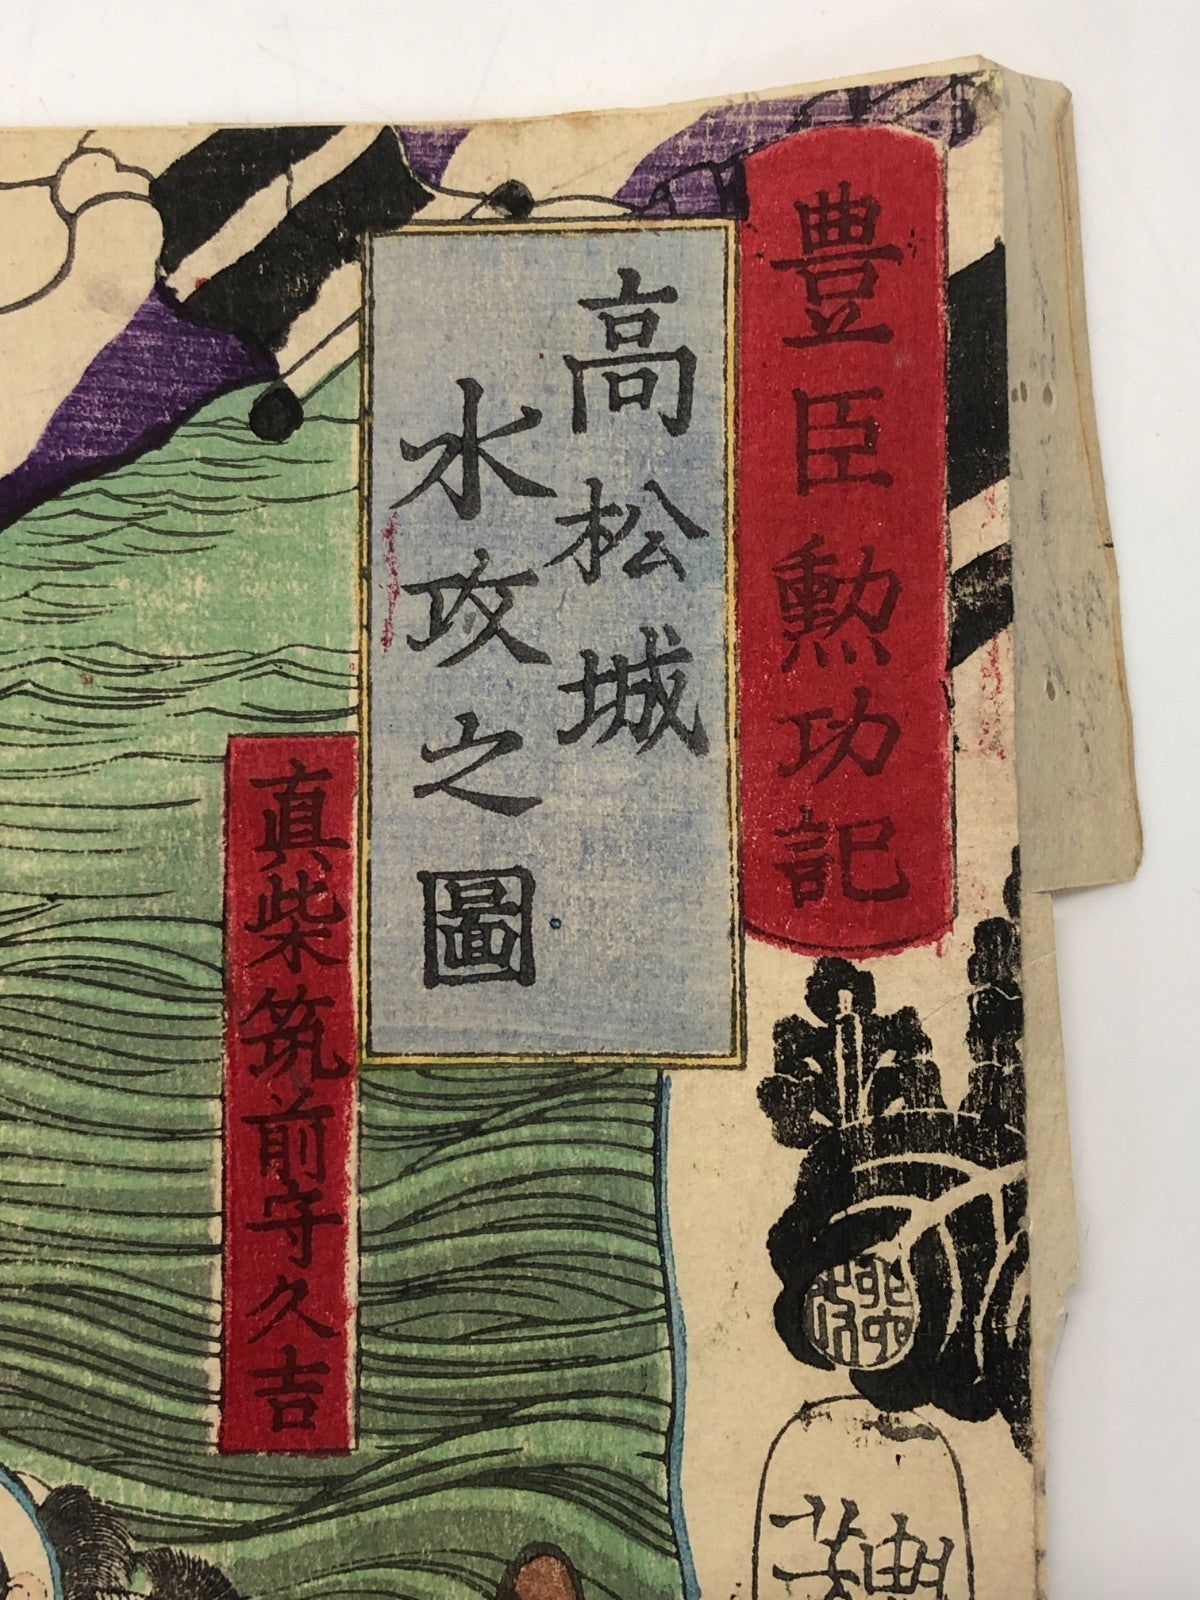 豊臣勲功記
高松城
水攻之圖
真柴筑前守久吉